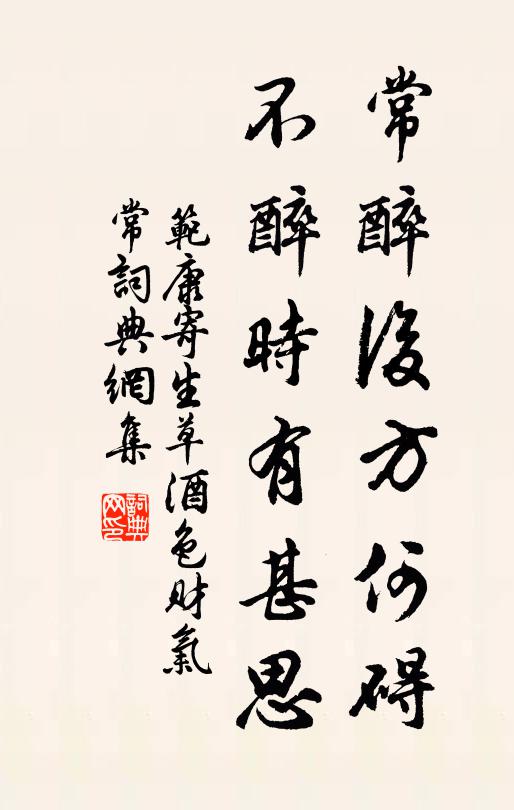 常醉後方何礙
不醉時有甚思
範康寄生草酒色財氣
常詞典網集
詞典
网印